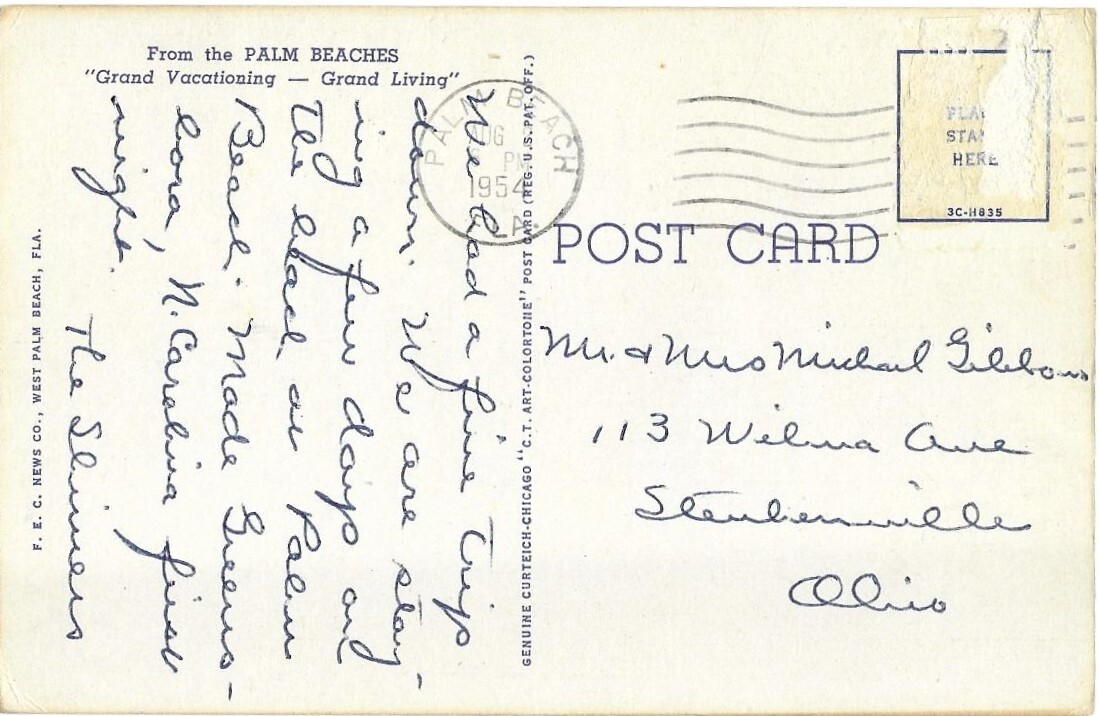 From the PALM BEACHES
"Grand Vacationing — Grand Living"
We had a fine trip
down. We are stay-
ing a few days on
The beach at Palm
Beach. Made Greens-
boro, N. Carolina first
night.
The Shiners
F. E. C. NEWS CO., WEST PALM BEACH, FLA.
GENUINE CURTEICH-CHICAGO "C.T. ART-COLORTONE" POST CARD (REG. U.S. PAT. OFF.)
PALM BEACH
AUG
PM
1954
FLA.
POST CARD
PLA
STA
HERE
3C-H835
Mr. & Mrs Michael Gibbons
113 Wilma Ave
Steubenville
Ohio